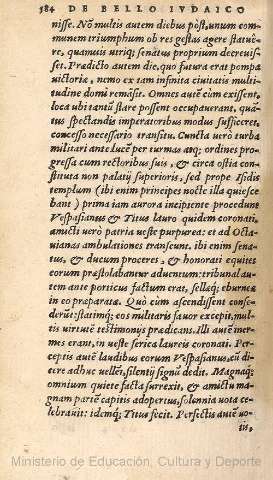 384 DE BELLO IVDAICO
nisse. Nõ multis autem diebus pòst, unum com-
munem triumphum ob res gestas agere statuê-
re, quamuis utriq; senatus proprium decreuis-
set. Prædicto autem die, quo futura erat pompa
victoriæ, nemo ex tam infinita ciuitatis multi-
tudine domi remãsit. Omnes autẽ cùm exissent,
loca ubi tantũ stare possent occupauerant, quã-
tus spectandis imperatoribus modus sufficeret,
concesso necessario transitu. Cuncta verò turba
militari ante lucẽ per turmas atq; ordines pro-
gressa cum rectoribus suis, & circa ostia con-
stituta non palatij superioris, sed prope Isidis
templum (ibi enim principes nocte illa quiesce
bant) prima iam aurora incipiente procedunt
Vespasianus & Titus lauro quidem coronati,
amicti verò patria ueste purpurea: et ad Octa-
uianas ambulationes transeunt. ibi enim sena-
tus, & ducum proceres, & honorati equites
eorum præstolabantur aduentum: tribunal au-
tem ante porticus factum erat, sellæq; eburneæ
in eo præparatæ. Quò cùm ascendissent conse-
derũt: statimq; eos militaris fauor excepit, mul-
tis virtutẽ testimonijs prædicans. Illi autẽ iner-
mes erant, in ueste serica laureis coronati. Per-
ceptis autẽ laudibus eorum Vespasianus, cũ di-
cere adhuc uellẽt, silentij signũ dedit. Magnaq;
omnium quiete facta surrexit, & amictu ma-
gnam partẽ capitis adopertus, solennia vota ce-
lebrauit: idemq; Titus fecit. Perfectis autẽ uo-
tis,
Ministerio de Educación, Cultura y Deporte